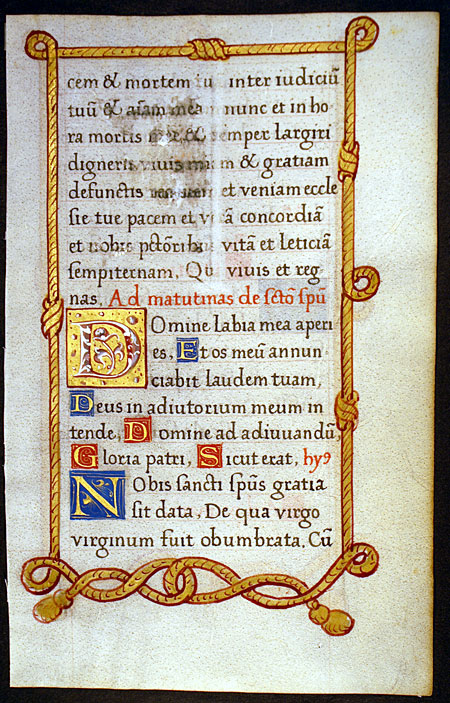 cem & mortem tuā inter iudiciū
tuū & aīam mea nunc et in ho
ra mortis & semper largiri
digneris vivis & gratiam
defunctis et veniam eccle
sie tue pacem et concordiā
et nobis pctōribus vitā et leticiā
sempiternam, Qui vivis et reg
nas, Ad matutinas de sctō spū
Domine labia mea aperi
es, Et os meū annun
ciabit laudem tuam,
Deus in adiutorium meum in
tende, Domine ad adiuuandū,
Gloria patri, Sicut erat, hyꝰ
Nobis sancti spūs gratia
sit data, De qua virgo
virginum fuit obumbrata. Cū